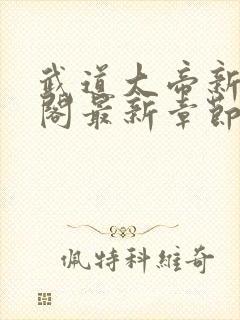 武道大帝新
閣最新章節
佩特科維奇